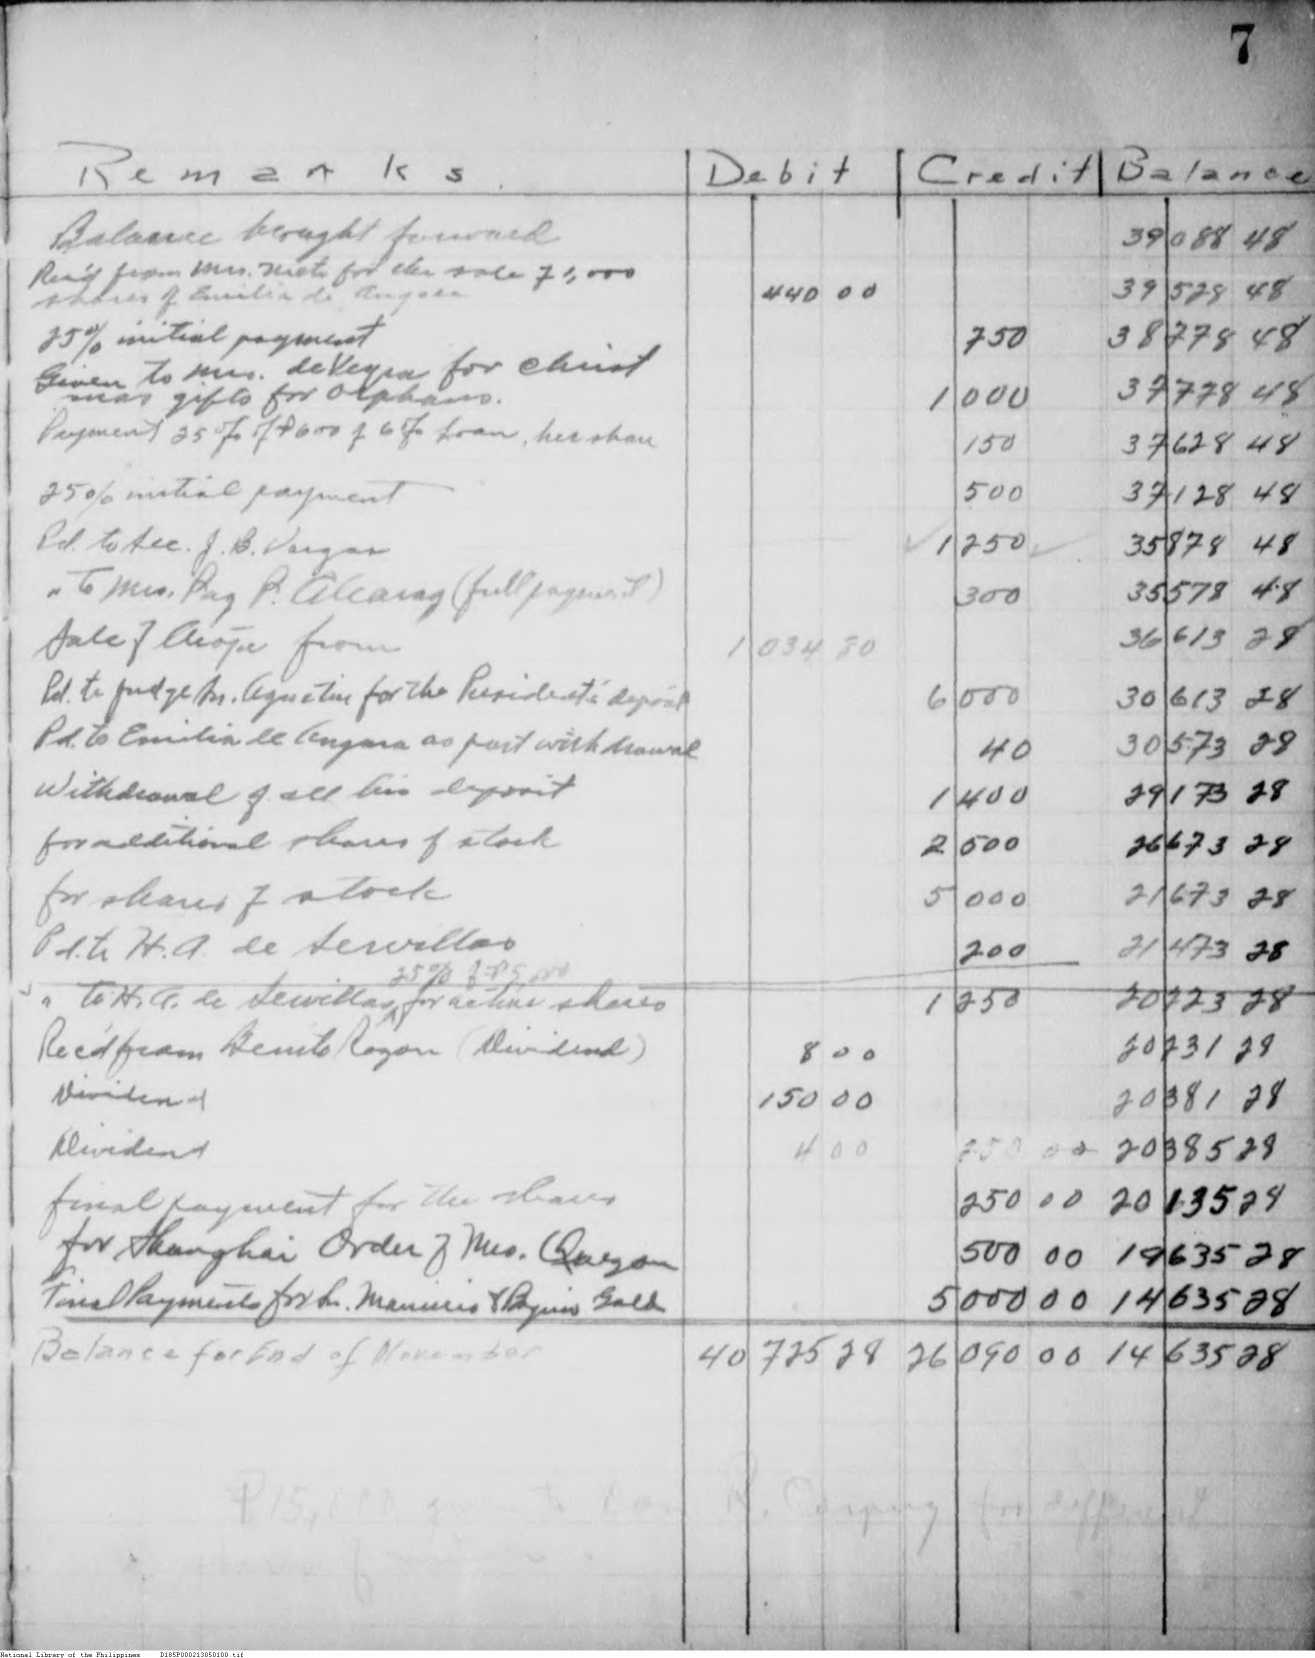 7
Remarks Debit Credit Balance
Balance brought forward 39 088 48
Rec'd from Mrs. for the sale of 1,000
shares of Emilia de Angara 440 00 39 528 48
25% initial payment 750 38 778 48
Given to Mrs. de Veyra for Christ
mas gifts for orphans. 1 000 37 778 48
Payment 25% of ₱600 of 6% loan, her share 150 37 628 48
25% initial payment 500 37 128 48
Pd. to Sec. J. B. Vargas 1 250 35 878 48
" to Mrs. Paz P. (full payment) 300 35 578 48
Sale of from 1 034 80 36 613 28
Pd. to Judge Agustin for the President's deposit 6 000 30 613 28
Pd. to Emilia de Angara as part withdrawal 40 30 573 28
Withdrawal of all his deposit 1 400 29 173 28
for additional shares of stock 2 500 26 673 28
for shares of stock 5 000 21 673 28
Pd. to H. A. de 200 21 473 28
25% of ₱5,000
" to H. A. de for active shares 1 250 20 223 28
Rec'd from Benito Razon (Dividend) 8 00 20 231 28
Dividend 150 00 20 381 28
Dividend 4 00 250 00 20 385 28
final payment for the shares 250 00 20 135 28
for Shanghai Order of Mrs. Quezon 500 00 19 635 28
Final Payments for & Gold 5 000 00 14 635 28
Balance for End of November 40 725 28 26 090 00 14 635 28
₱15,000 for different